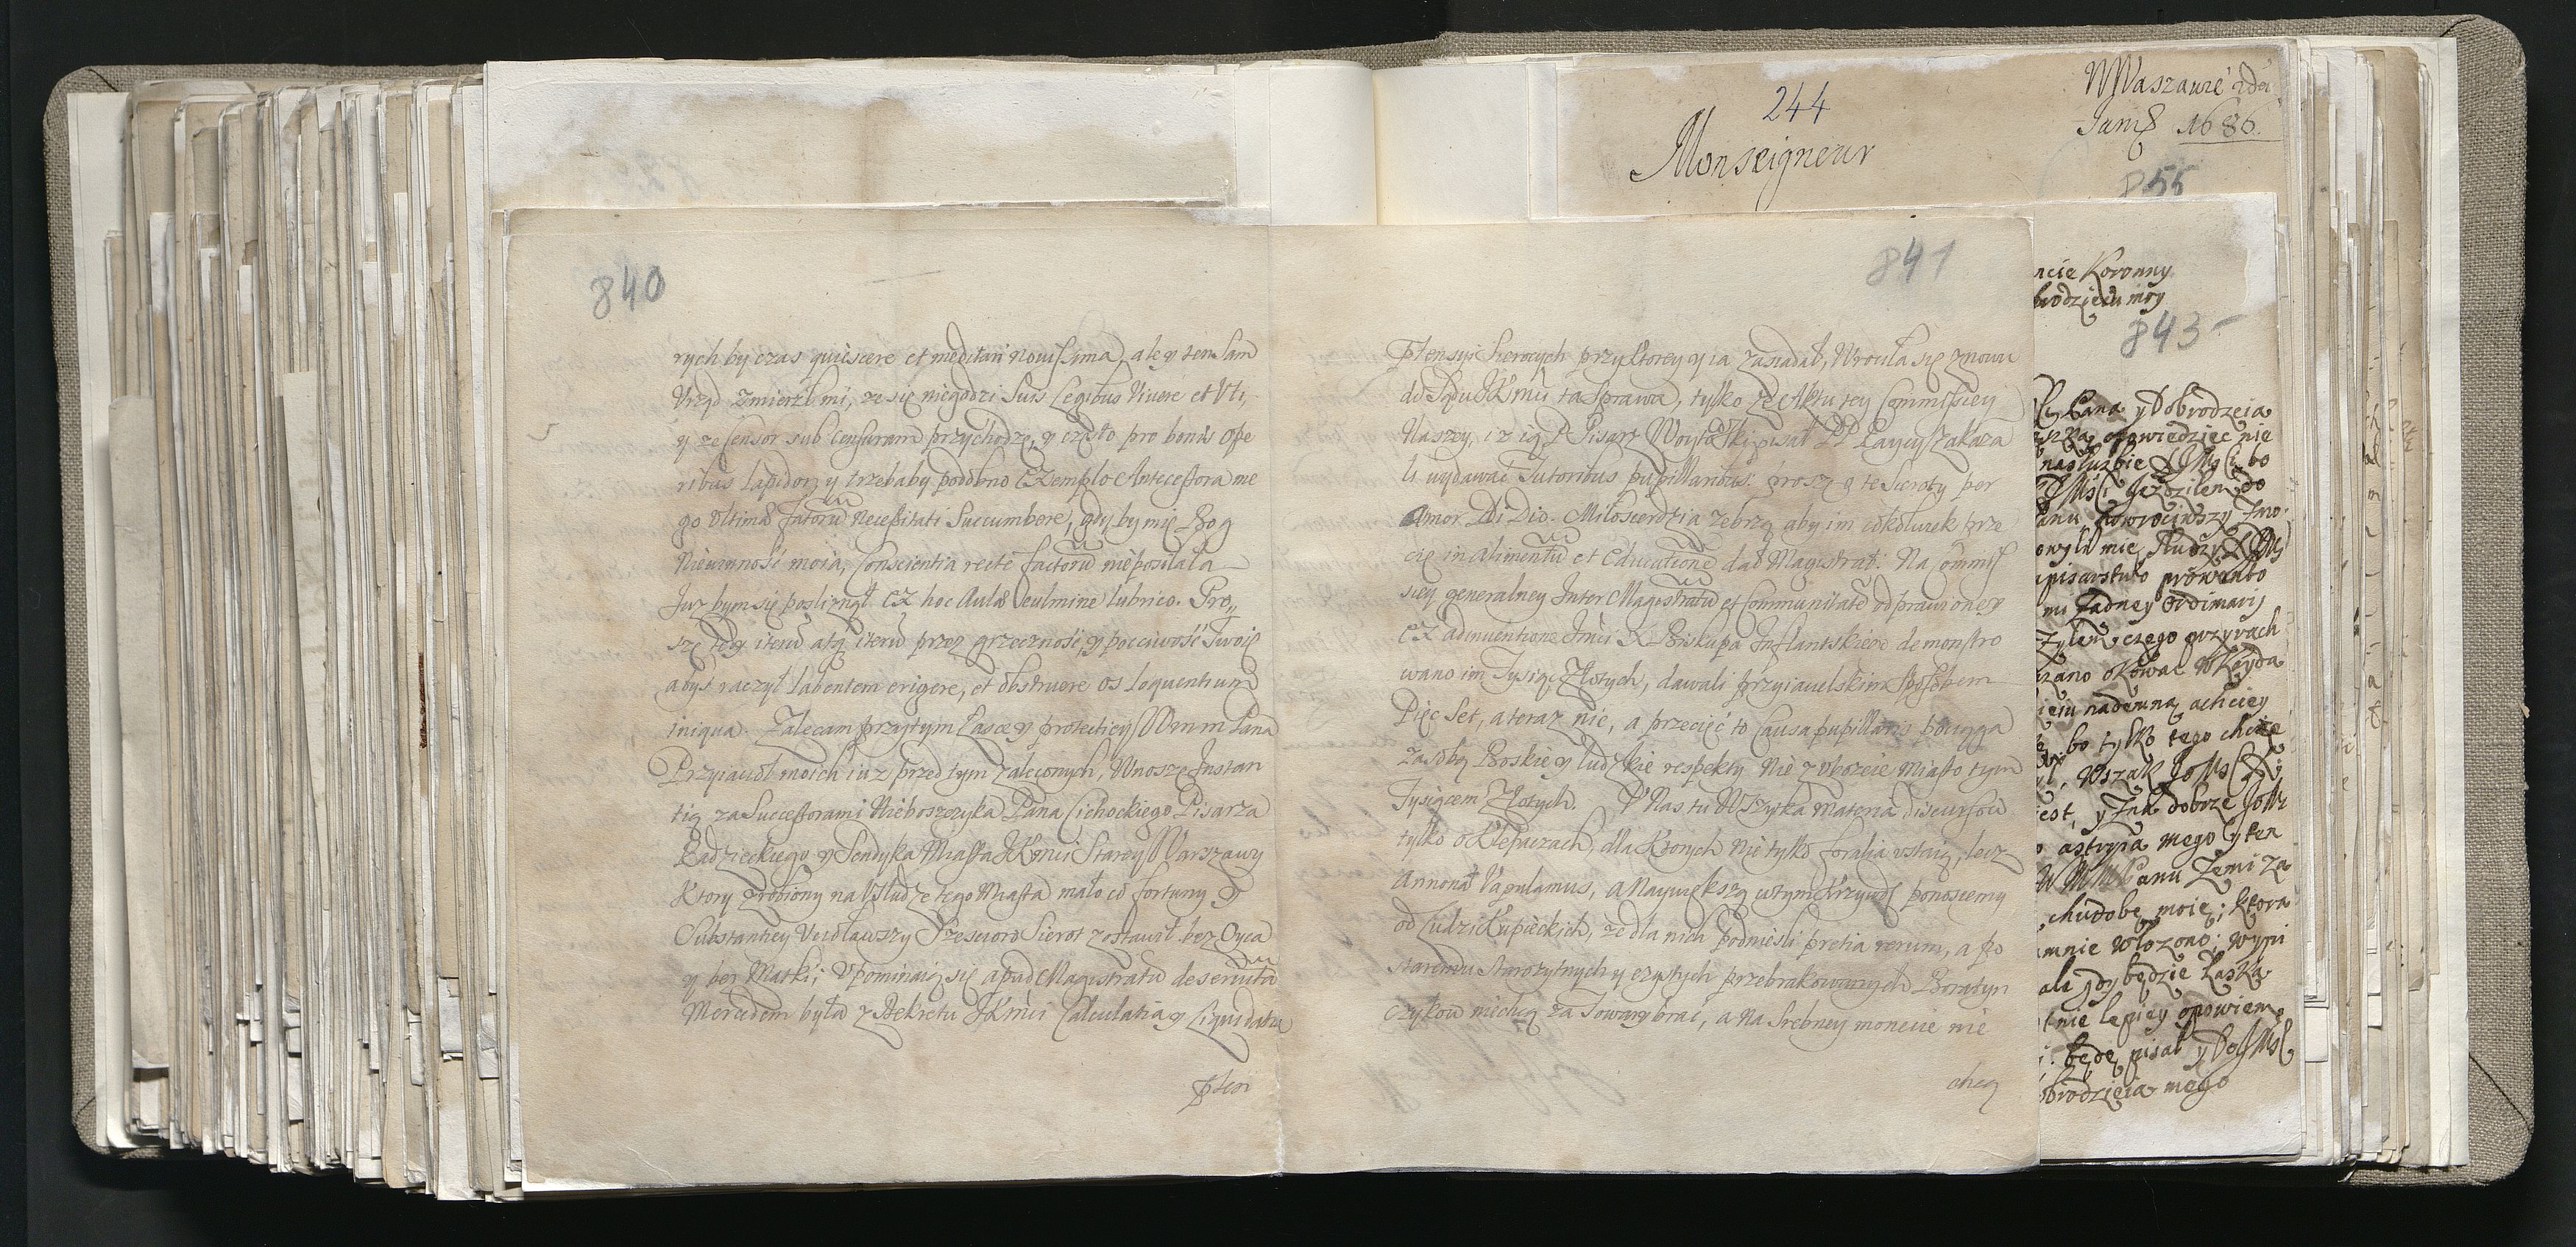 840
rych by czas quiescere et meditari novissima, ale y ten sam
Urząd zmierzł mi, ze się niegodzi suis Legibus Vivere et Uti,
y ze Censor sub Censuram przychodzę, y często pro bonis ope
ribus lapidor, y trzebaby podobno exemplo Antecessora me
go ultimæ fatorū necessitati succumbere, gdyby mię Bog
Niewinność moia, Conscientia recte factorū nieposilała
Iuz bym się posliznął ex hoc Aulæ culmine lubrico. Pro,,
szę tedy iterū atq iterū przez grzeczność, y poczciwość Twoię
abyś raczył labentem erigere, et obstruere os loquentium
iniqua. Zalecam przytym Łasce y protectiey WMm Pana
Przyiacioł moich iuz przed tym zaleconych, Wnoszę Instan
tią za Successorami Nieboszczyka Pana Cichockiego Pisarza
Radzieckiego y Sendyka Miasta JKmci Starey Warszawy
Ktory zrobiony na Usłudze tego Miasta mało co fortuny y
Substantiey Uciuławszy Szescioro Sierot zostawił bez Oyca
y bez Matki; Upominaią się apud Magistratū deservitā
Mercedem była z Dekretu JKmci Calculatia y Liquidatia
pten
841
ptensyi Sierocych przyktorey y ia zasiadał, Wrociła się znowu
do Sądu JKmci ta Sprawa, tylko ze Aktu tey Commissiey
Naszey, iz ią P. Pisarz pisał PP Ławicy zakaza
li wydawać Tutoribus pupillaribus: proszą te Sieroty per
Amor Di Dio. Miłosierdzia zebrzą aby im cokolwiek prze
cię in alimentū et educationē dał Magistrat: Na Commis
siey generalney Inter Magistratū et Communitatē odprawioney
ex adinventione Jmci X Biskupa Inflantskiego demonstro
wano im Tysiąc Złotych, dawali przyiacielskim sposobem
Pięc Set, a teraz nic, a przecięć to Causa pupillaris pociąga
za sobą Boskie y ludzkie respekty Nie zubozeie Miasto tym
Tysiącem Złotych. U Nas tu Wszytka materia discursow
tylko o Klepaczach, dla Ktorych nie tylko foralia ustaią, lecz
Annonā Vapulamus, a Naywiększą w tym Krzywdę ponosiemy
od Ludzi Kupieckich, ze dla nich podniesli pretia rerum, a po
staremu Starozytnych y czystych przebrakowanych Boratyn
czykow niechcą za Towary brać, a na Srebrney monecie nie
chcą
244
W Waszawie 2da
Junÿ 1686.
Monseigneur
855
ncie Koronny
brodzieiu moy
843
Pana y Dobrodzieia
opowiedziec nie
na słuzbie JMsci bo
JMsci Jezdziłem do
Panu powrociwszy
mie Słudzy JMs
pisarstwo prowanto
mi zadney Ordinarij
czego
rzano okowac Kayda
ieiu nademną achciey
bo tylko tego chcize
Wszak JoMsc
iest, y zna dobrze JoMs
astryia mego y ten
W M Panu Zemi za
chudobę moię; ktora
mnie włozono; wypi
ali gdy będzie Łaska
tnie lepiey opowiem
będę pisał y Do JMsc
obrodzieia mego